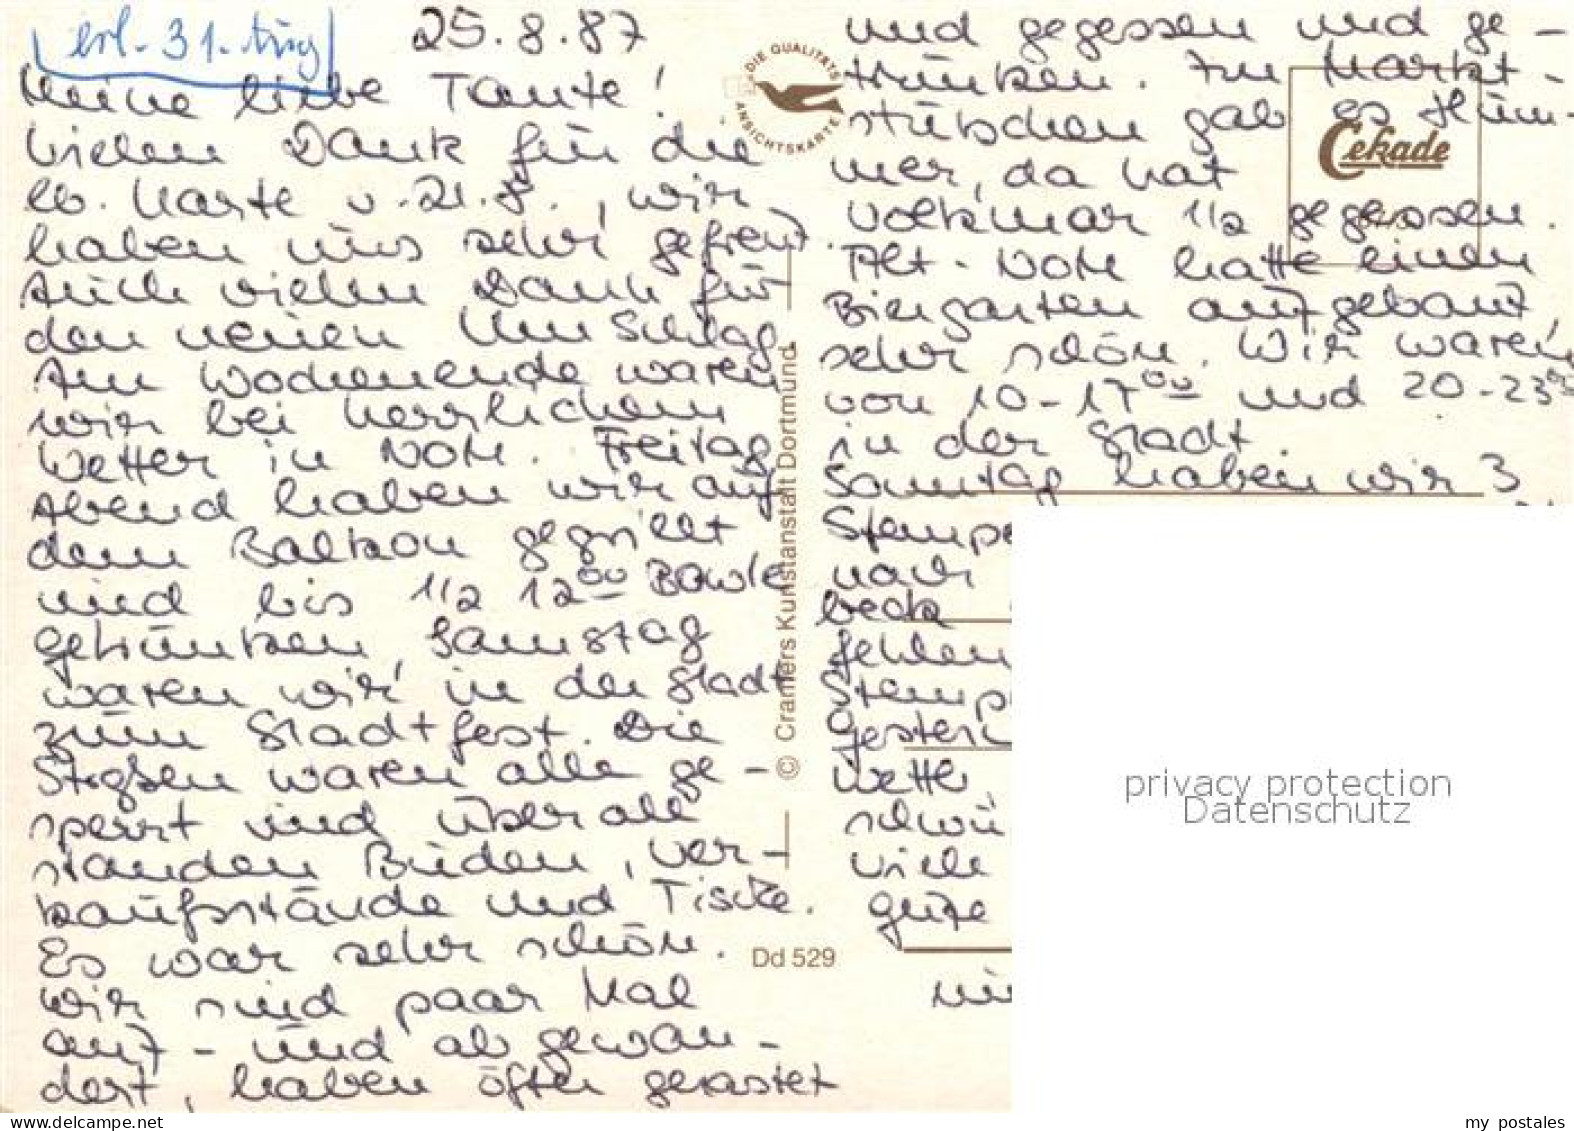 erl. 31. Aug
25.8.87
Meine liebe Tante!
Vielen Dank für die
lb. Karte v. 21.8., wir
haben uns sehr gefreut.
Auch vielen Dank für
den neuen Umschlag.
Am Wochenende waren
wir bei herrlichem
Wetter in NOM. Freitag
Abend haben wir auf
dem Balkon gegrillt
und bis 1/2 12 00 Bowle
getrunken, Samstag
waren wir in der Stadt
zum Stadtfest. Die
Straßen waren alle ge-
sperrt und überall
standen Buden, Ver-
kaufsstände und Tische.
Es war sehr schön.
Wir sind paar Mal
auf- und ab gewan-
dert, haben öfter gerastet
und gegessen und ge-
trunken. Im Markt-
stübchen gab es Hum-
mer, da hat
Volkmar 1/2 gegessen.
Alt-NOM hatte einen
Biergarten aufgebaut,
sehr schön. Wir waren
von 10-17 00 und 20-23 00
in der Stadt.
Sonntag haben wir 3
Stempe
nach
beck
fehlen
Stemp
Gestern
Wetter
schwü
Viele
gute
DIE QUALITÄTS
ANSICHTSKARTE
Cekade
© Cramers Kunstanstalt Dortmund
Dd 529
privacy protection
Datenschutz
www.delcampe.net
my_postales